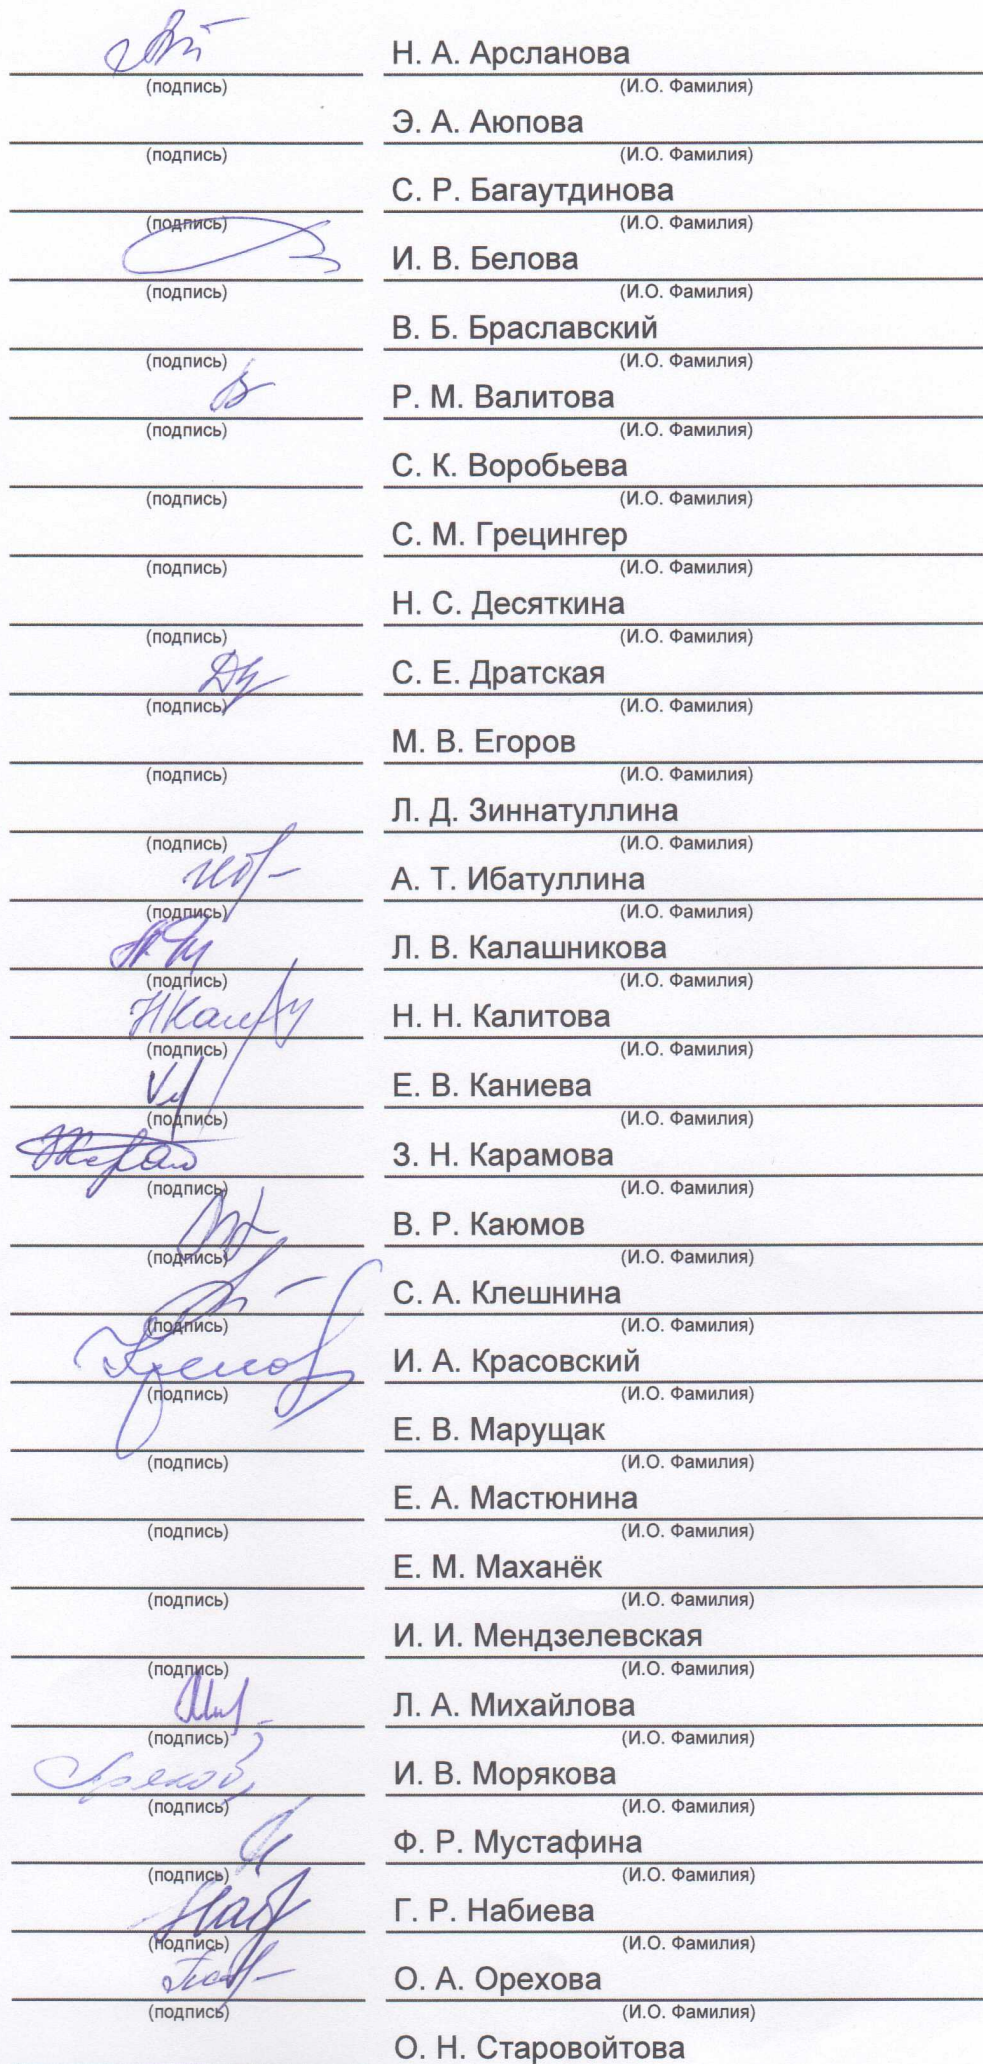 Н. А. Арсланова
(подпись) (И.О. Фамилия)
Э. А. Аюпова
(подпись) (И.О. Фамилия)
С. Р. Багаутдинова
(подпись) (И.О. Фамилия)
И. В. Белова
(подпись) (И.О. Фамилия)
В. Б. Браславский
(подпись) (И.О. Фамилия)
Р. М. Валитова
(подпись) (И.О. Фамилия)
С. К. Воробьева
(подпись) (И.О. Фамилия)
С. М. Грецингер
(подпись) (И.О. Фамилия)
Н. С. Десяткина
(подпись) (И.О. Фамилия)
С. Е. Дратская
(подпись) (И.О. Фамилия)
М. В. Егоров
(подпись) (И.О. Фамилия)
Л. Д. Зиннатуллина
(подпись) (И.О. Фамилия)
А. Т. Ибатуллина
(подпись) (И.О. Фамилия)
Л. В. Калашникова
(подпись) (И.О. Фамилия)
Н. Н. Калитова
(подпись) (И.О. Фамилия)
Е. В. Каниева
(подпись) (И.О. Фамилия)
З. Н. Карамова
(подпись) (И.О. Фамилия)
В. Р. Каюмов
(подпись) (И.О. Фамилия)
С. А. Клешнина
(подпись) (И.О. Фамилия)
И. А. Красовский
(подпись) (И.О. Фамилия)
Е. В. Марущак
(подпись) (И.О. Фамилия)
Е. А. Мастюнина
(подпись) (И.О. Фамилия)
Е. М. Маханёк
(подпись) (И.О. Фамилия)
И. И. Мендзелевская
(подпись) (И.О. Фамилия)
Л. А. Михайлова
(подпись) (И.О. Фамилия)
И. В. Морякова
(подпись) (И.О. Фамилия)
Ф. Р. Мустафина
(подпись) (И.О. Фамилия)
Г. Р. Набиева
(подпись) (И.О. Фамилия)
О. А. Орехова
(подпись) (И.О. Фамилия)
О. Н. Старовойтова